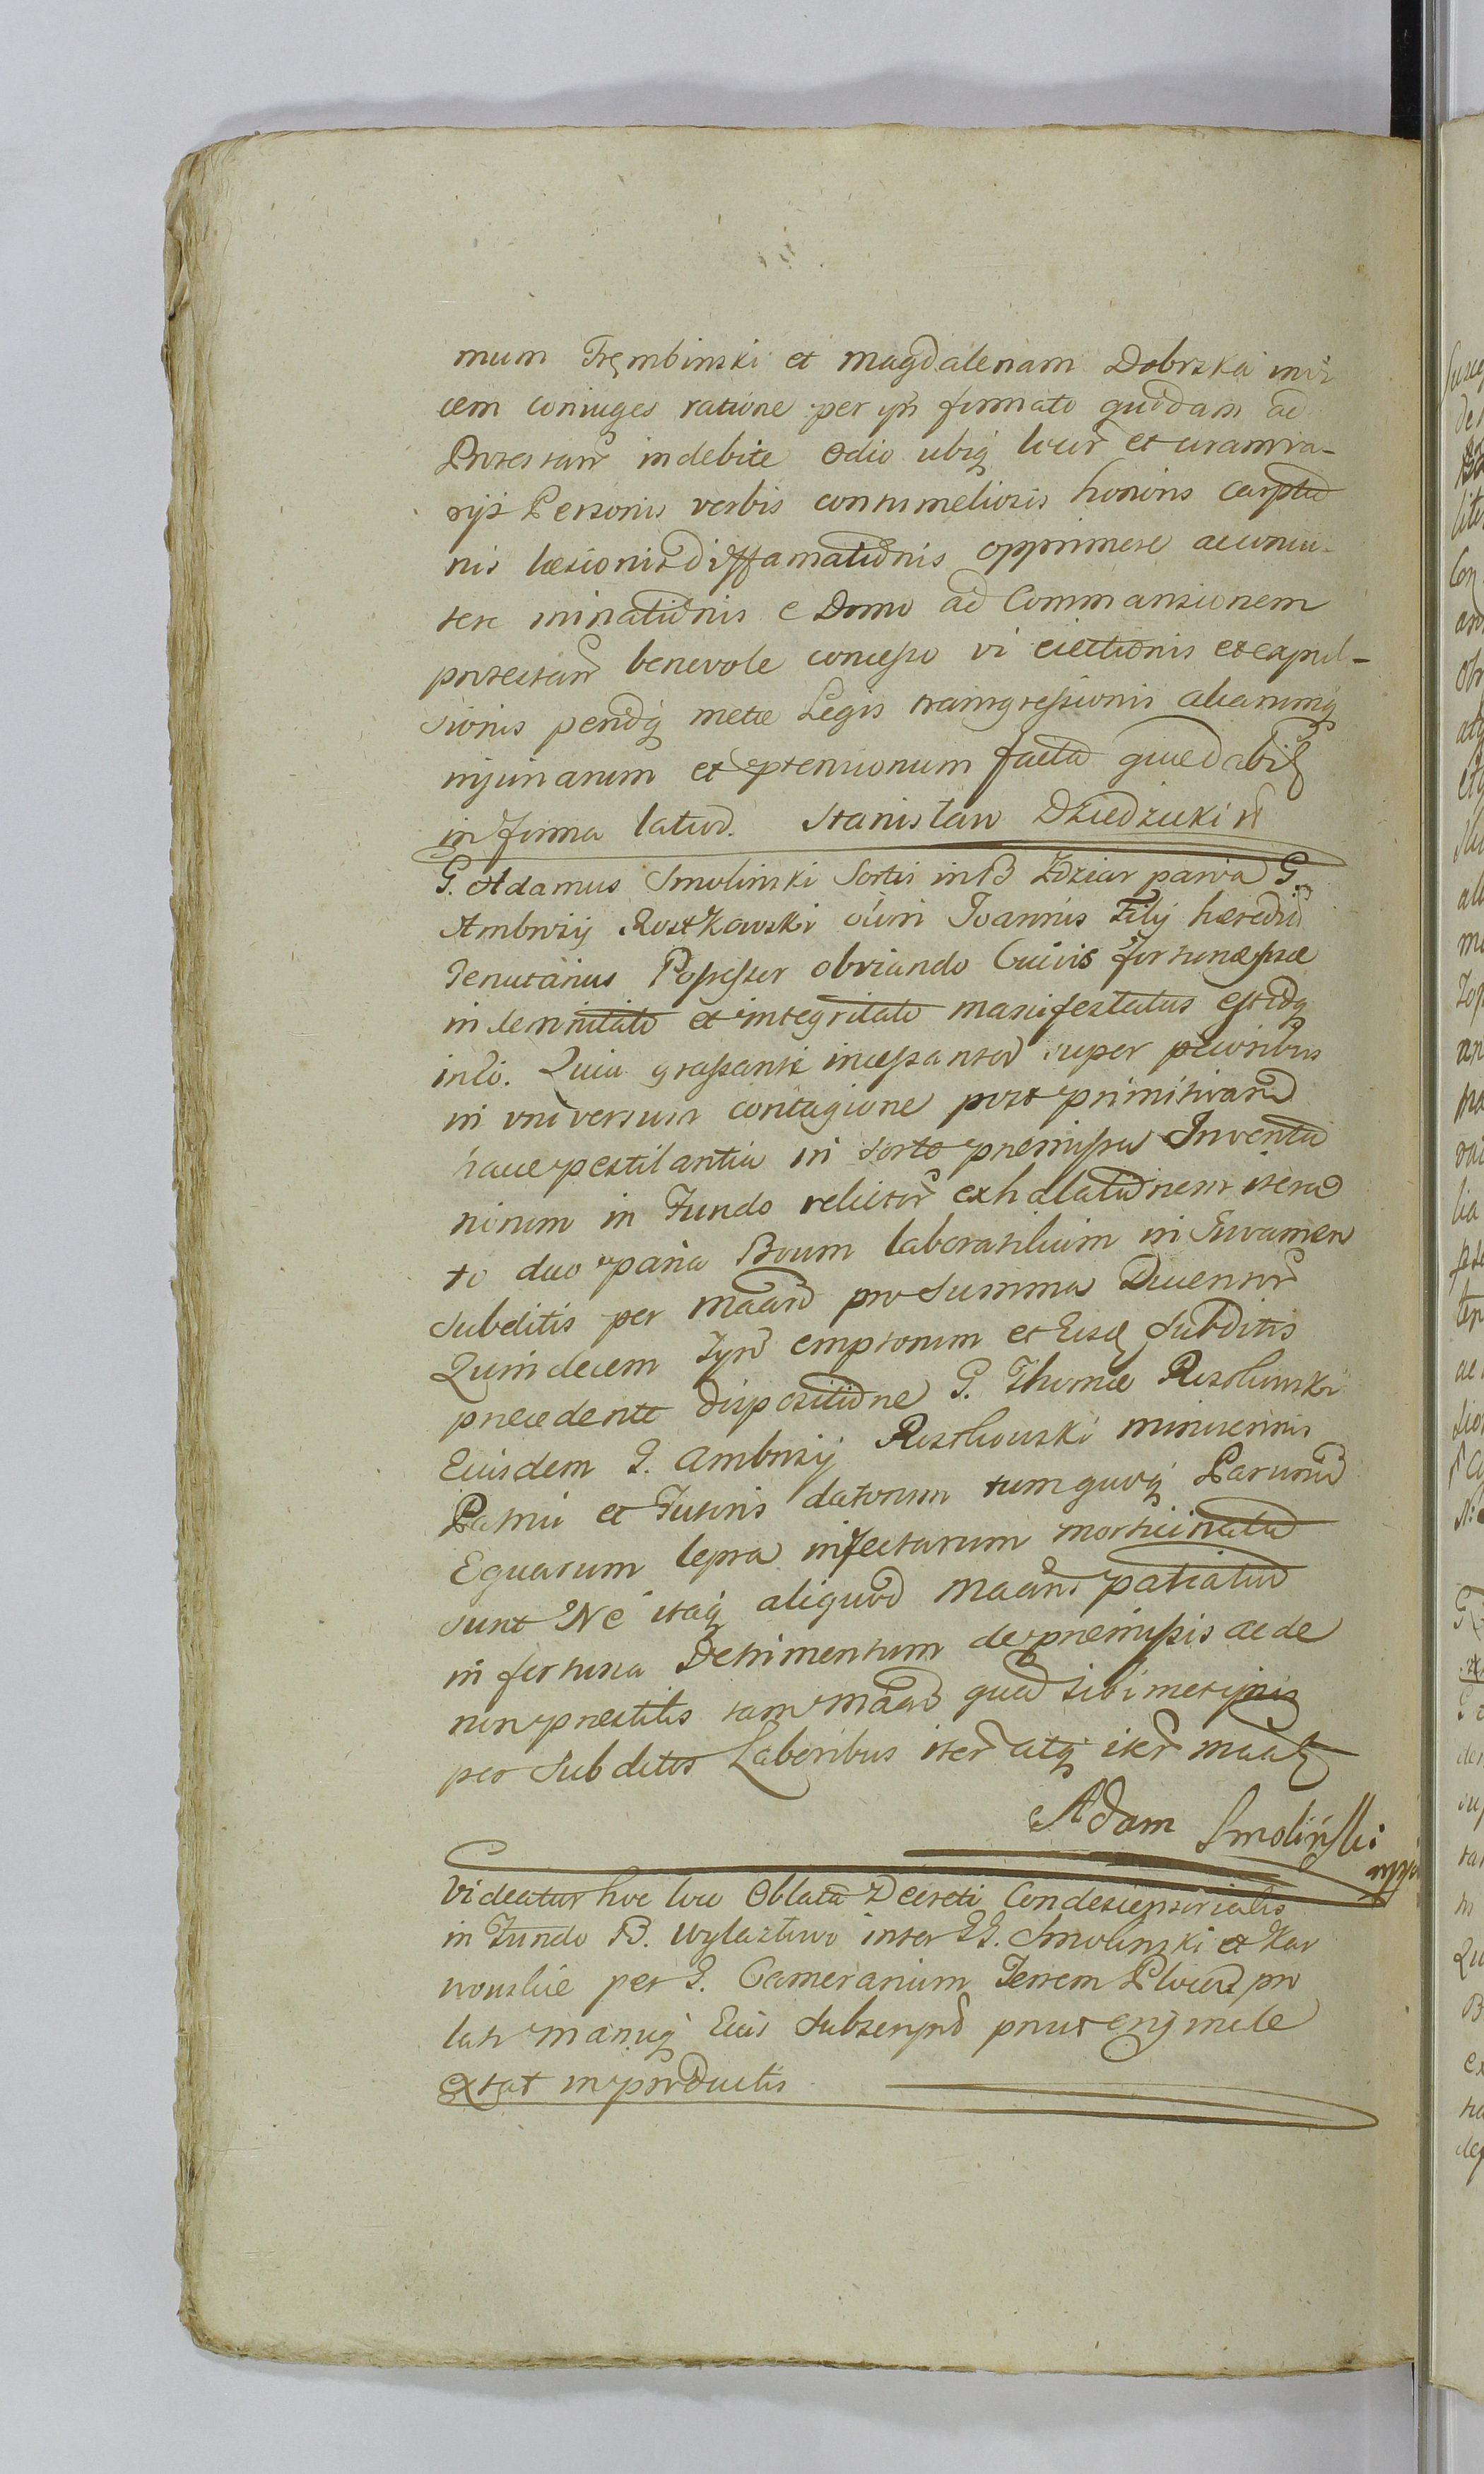 mum Trębinski et Magdalenam Dobrska invi
cem coniuges ratione per ips firmato quodam ac
Protestan indebite odio ubiq locor et coram va-
rijs Personis verbis contumeliosis honoris carptio
nis læsionis diffamationis opprimere ac
tere minationis e Domo ad Commansionem
protestan benevole concesso vi eiectionis et expul-
sionis pœnæq metæ Legis transgressionis aliarumq
injuriarum et ptensionum facta quæ
in forma latior. Stanisław Dziedzicki
G. Adamus Smolinski Sortis in B Zdziar parva G.
Ambrosij Rostkowski olim Joannis Filij hæredis
Tenutarius Possessor obviando Cuivis fortunæ suæ
indemnitate et integritate manifestatus est idq
in eo. Quia grassante incessanter super pecoribus
in universum contagione post primitivam
hacce pestilantia in sorte præmissa Inventa
riorum in Fundo relictor exhalationem itera
to duo paria Boum laboratilium in Iuvamen
Subditis per Maan pro Summa Ducentor
Quindecem Tyn emptorum et Eisd Subditis
præcedente dispositione G. Thomæ Rostkowski
Eiusdem G. Ambrosij Rostkowski minorennis
Patrui et Tutoris datorum tum quoq Parium
Equarum lepra infectarum morticinata
sunt Ne itaq aliquod Maans patiatur
in fortuna Detrimentum de præmissis ac de
non præstitis tam Maan quam sibimet ipsis
per Subditos Laboribus iter atq iter
Adam Smoliński
mpp
Videatur hoc loco Oblata Decreti Condescensorialis
in Fundo B. Wylazłowo inter GG. Smolinski et Kar
wouskie per G. Camerarium Terrem Plocen pro
lati manuq Eius Subscripti prout originale
extat in productis